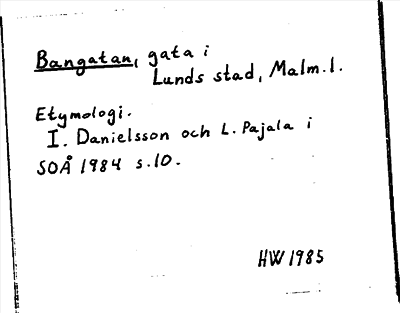 Bangatan, gata i
Lunds stad, Malm.l.
Etymologi.
I. Danielsson och L. Pajala i
SOÅ 1984 s.10.
HW 1985